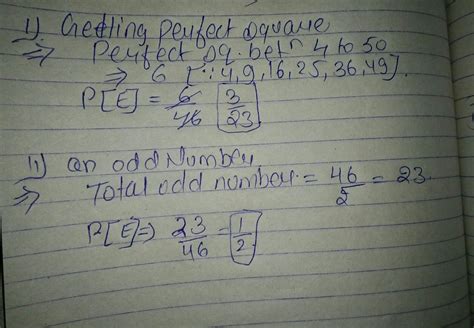 1). Getting perfect square
⇒ Perfect sq. betⁿ 4 to 50
⇒ 6 [∵ 4, 9, 16, 25, 36, 49].
P[E] = 6/46 3/23
11) an odd Number
⇒ Total odd number = 46/2 = 23.
P[E] ⇒ 23/46 = 1/2